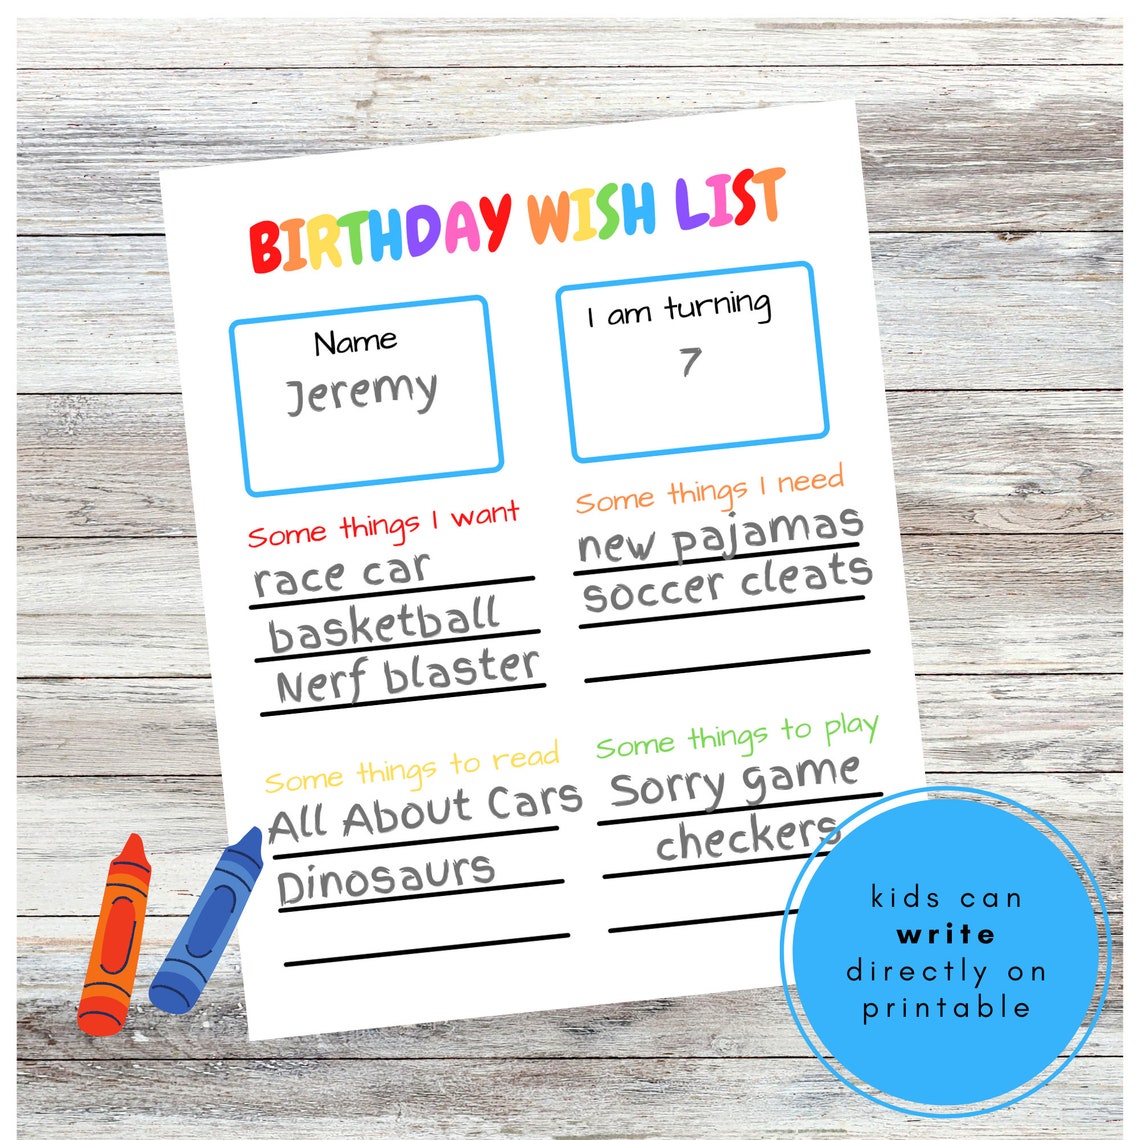 BIRTHDAY WISH LIST
Name
Jeremy
I am turning
7
Some things I want
race car
basketball
Nerf blaster
Some things I need
new pajamas
soccer cleats
Some things to read
All About Cars
Dinosaurs
Some things to play
Sorry game
checkers
kids can
write
directly on
printable